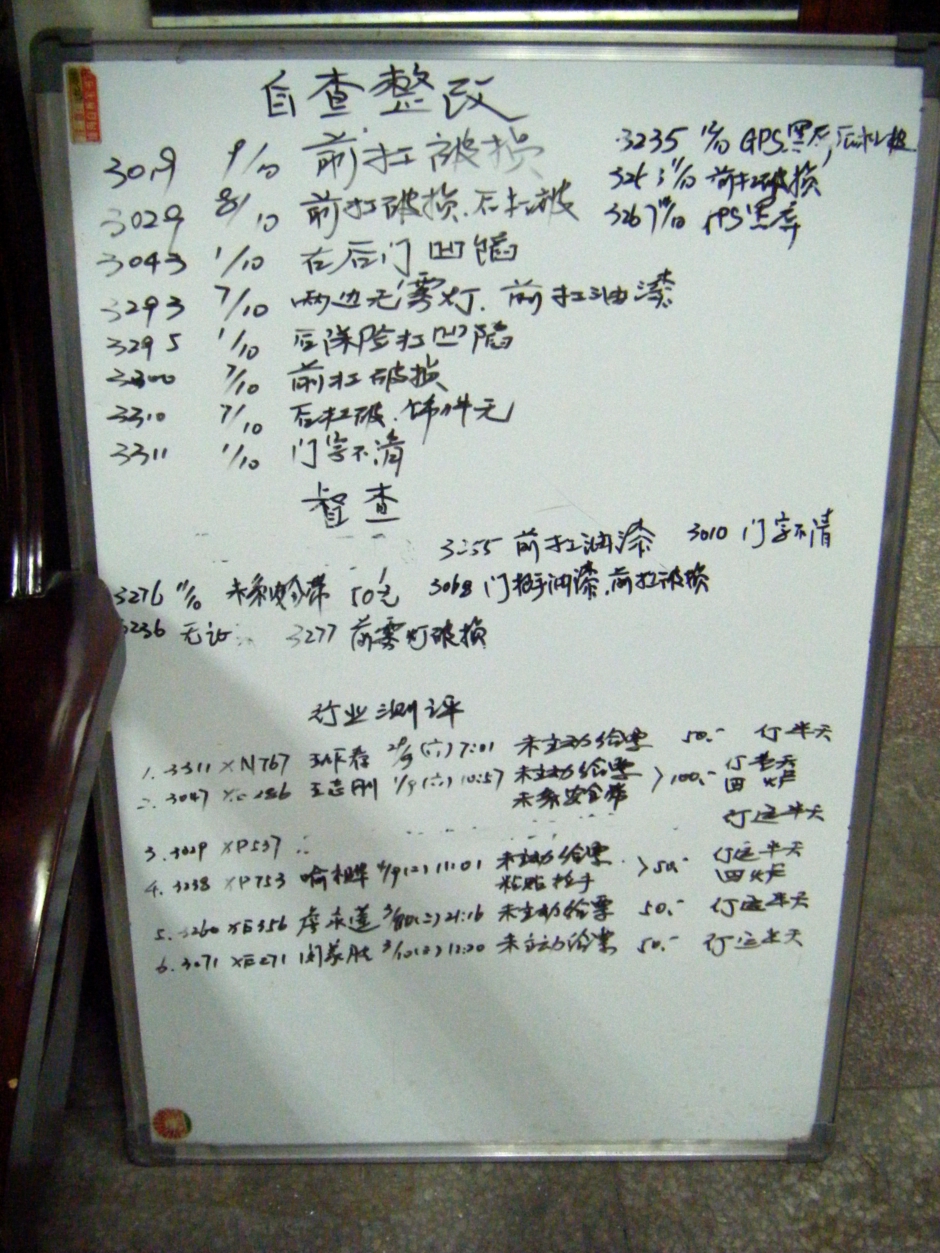 自查整改
3019 9/10 前杠破损
3029 8/10 前杠破损.后杠破
3043 1/10 左后门凹陷
3293 7/10 两边无雾灯.前杠油漆
3295 1/10 后保险杠凹陷
3300 7/10 前杠破损
3310 7/10 后杠破.
3311 1/10 门字不清
3235 GPS黑屏,后杠破
3263 11/10 前杠破损
3267 GPS黑屏
督查
3255 前杠油漆 3010 门字不清
3276 11/10 未系安全带 50元 3068 门把手油漆.前杠破损
3236 无证 3277 前雾灯破损
行业测评
1. 3311 XN767 (六) 7:01 未主动给票 50.- 停半天
2. 3047 王志刚 1/9 (六) 10:57 未主动给票 >100.-
未系安全带
停运半天
3. 3029 XP537
4. 3238 XP753 (二) 11:01 未主动给票 >50.- 停运半天
5. 3260 XE356 (二) 21:16 未主动给票 50.- 停运半天
6. 3071 XE271 未主动给票 50.- 停运半天